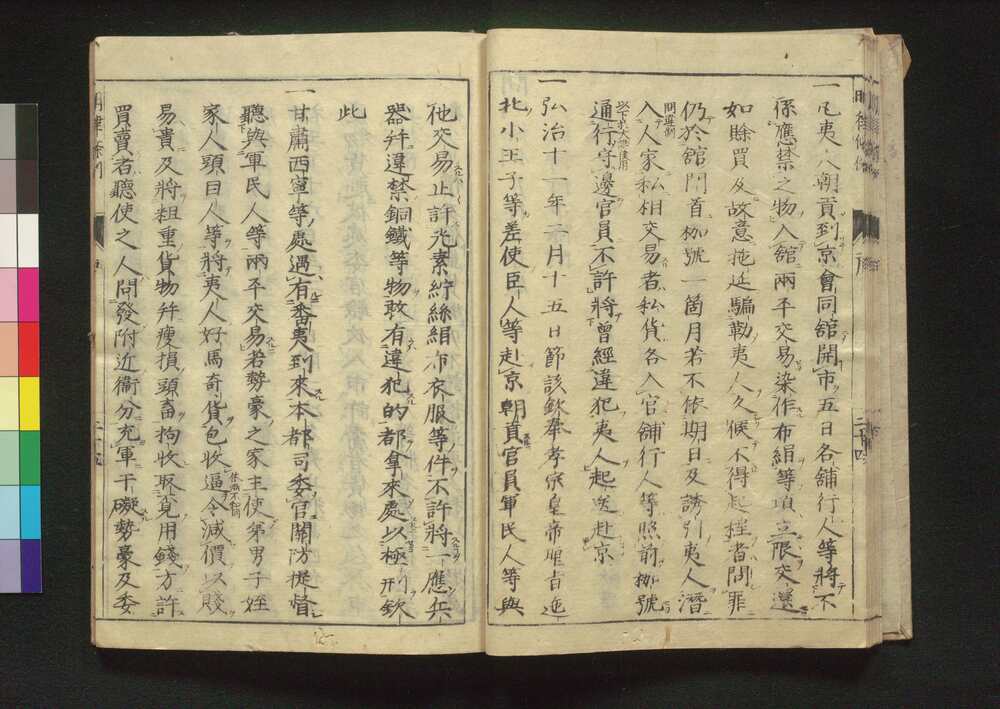 一凡夷人朝貢到京會同舘開市五日各舖行人等將不
係應禁之物入舘兩平交易染作布絹等項立限交還
如賒買及故意拖延騙勒夷人久候不得起程者問罪
仍於舘門首枷號一箇月若不依期日及誘引夷人潛
入人家私相交易者私貨各入官舖行人等照前枷號
通行守邊官員不許將曾經違犯夷人起送赴京
一弘治十一年二月十五日節該欽奉孝宗皇帝聖旨迤
北小王子等差使臣人等赴京朝貢官員軍民人等與
他交易止許光素紵絲絹布衣服等件不許將一應兵
器幷違禁銅鐵等物敢有違犯的都拿來處以極刑欽
此
一甘肅西寧等處遇有番夷到來本都司委官關防提督
聽與軍民人等兩平交易若勢豪之家主使弟男子姪
家人頭目人等將夷人好馬奇貨包收逼令減價以賤
易貴及將粗重貨物幷瘦損頭畜拘收取覓用錢方許
買賣者聽使之人問發附近衞分充軍干礙勢豪及委